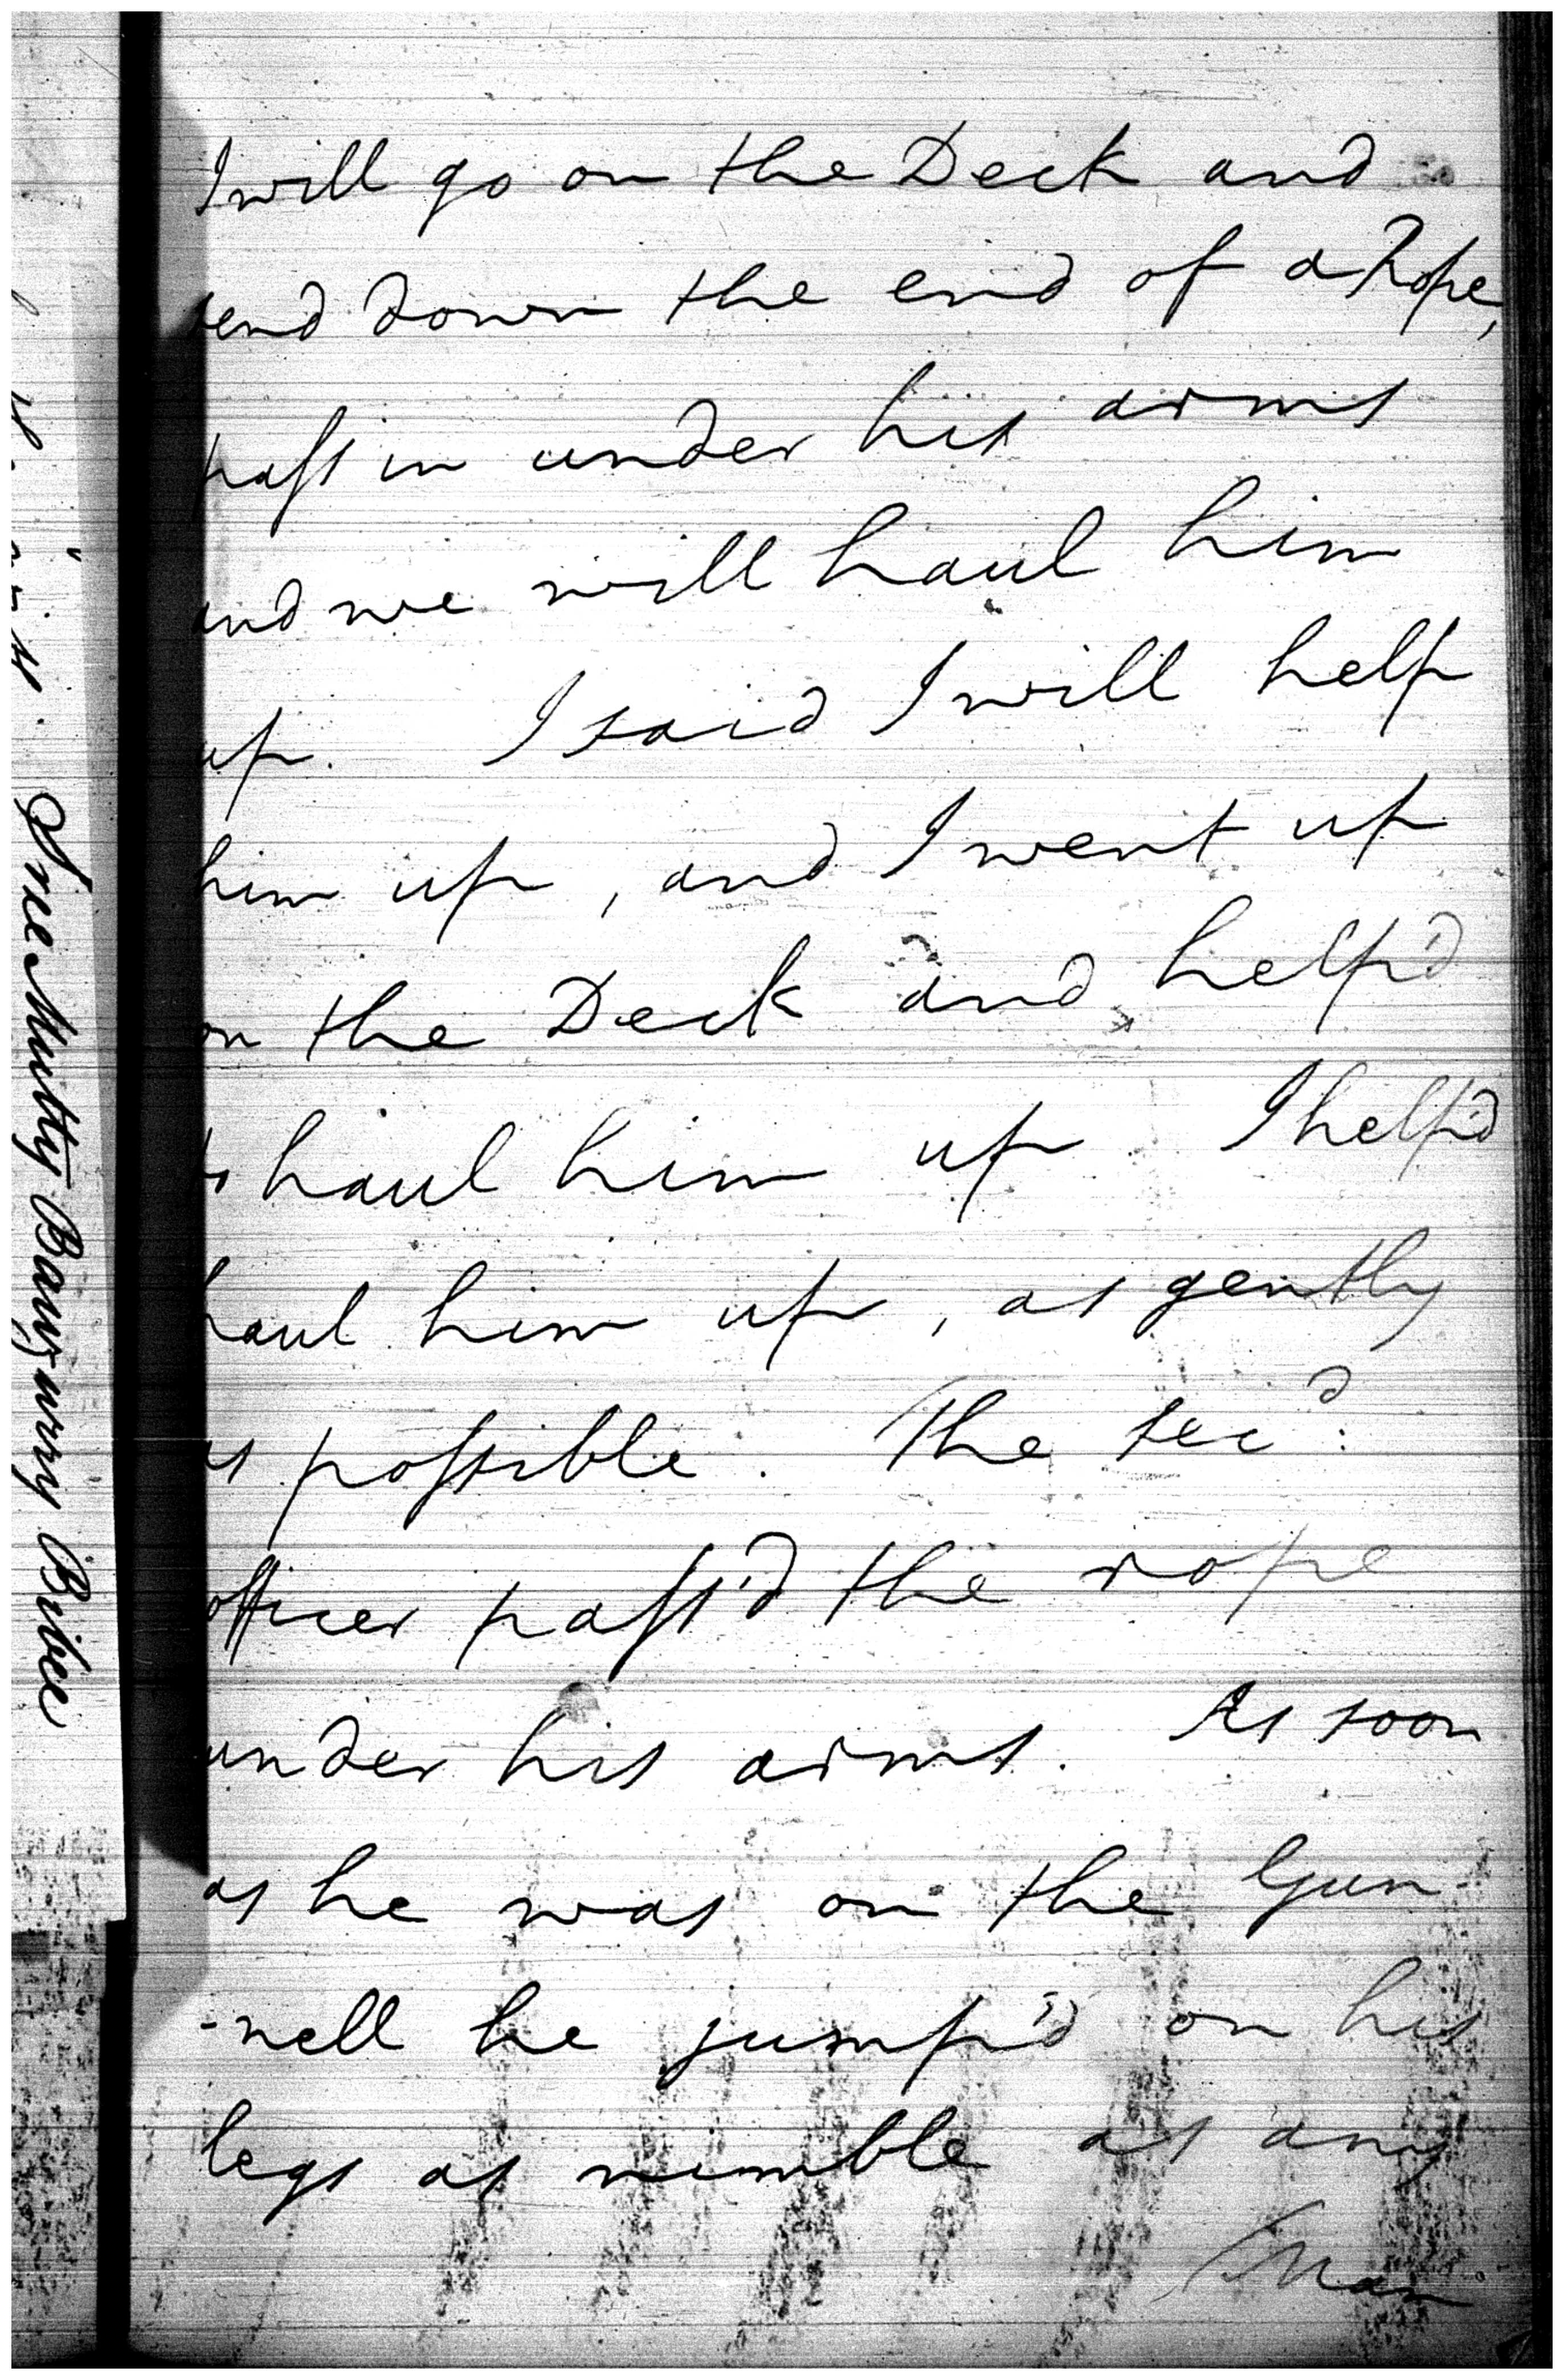 I will go on the Deck and
send down the end of a Rope,
pass in under his arms
and we will haul him
up. I said I will help
him up, and I went up
on the Deck and help'd
to haul him up I help'd
haul him up, as gently
as possible. The secd:
officer pass'd the rope
under his arms. As soon
as he was on the Gun-
-nell he jump'd on his
legs as nimble as any
Man